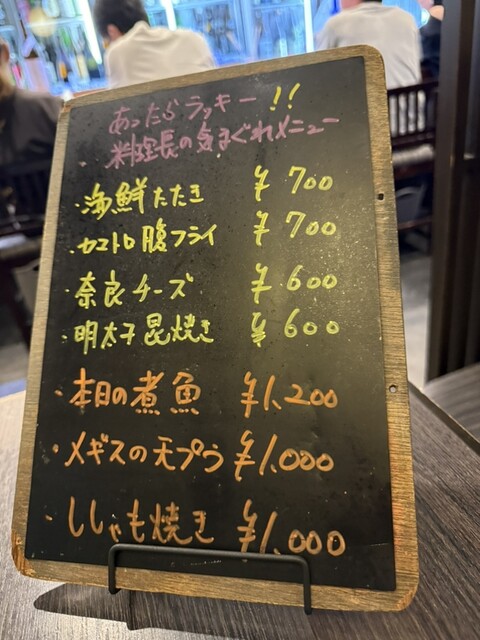 あったらラッキー!!
料理長の気まぐれメニュー
・海鮮たたき ¥700
・カマトロ腹フライ ¥700
・奈良チーズ ¥600
・明太子昆焼き ¥600
・本日の煮魚 ¥1,200
・メギスの天プラ ¥1,000
・ししゃも焼き ¥1,000